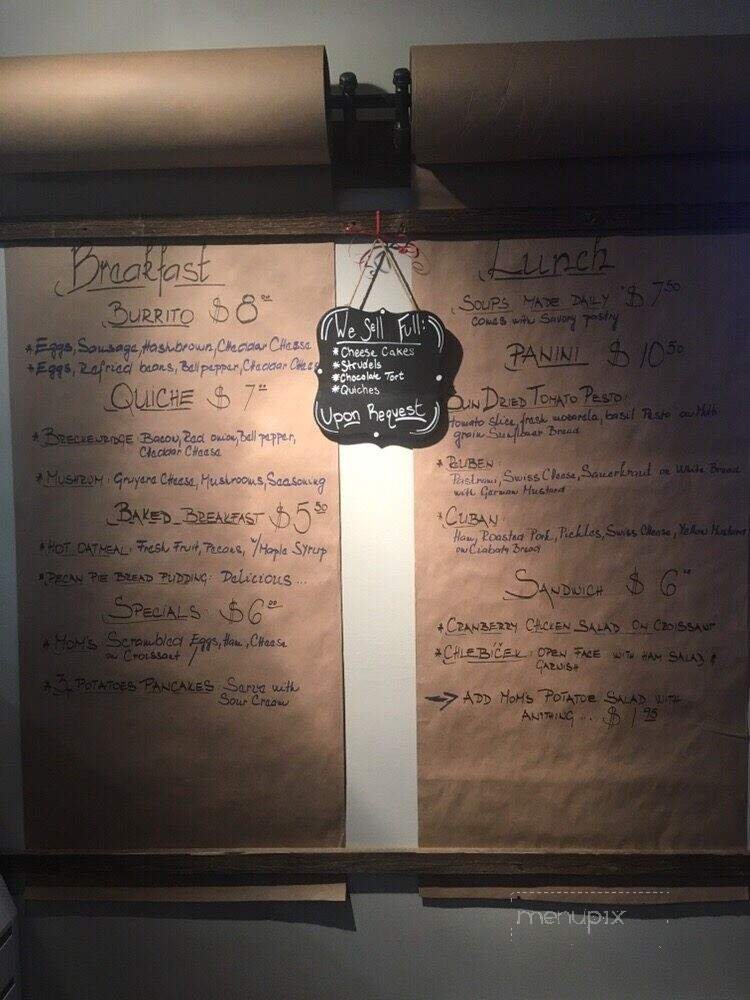 Breakfast
BURRITO $8.00
*Eggs, Sausage, Hashbrown, Cheddar Cheese
*Eggs, Refried beans, Bell pepper, Cheddar Cheese
QUICHE $7
*BRECKENRIDGE Bacon, Red onion, Bell pepper,
Cheddar Cheese
*MUSHRUM: Gruyera Cheese, Mushrooms, Seasoning
BAKED BREAKFAST $5.50
*HOT OATMEAL: Fresh Fruit, Pecans, w/Maple Syrup
*PECAN PIE BREAD PUDDING: Delicious...
SPECIALS $6.00
*MOM'S Scrambled Eggs, Ham, Cheese
on Croissant
*3 POTATOES PANCAKES Serve with
Sour Cream
We Sell Full:
*Cheese Cakes
*Strudels
*Chocolate Tort
*Quiches
Upon Request
Lunch
SOUPS MADE DAILY $7.50
comes with Savory pastry
PANINI $10.50
SUN DRIED TOMATO PESTO:
tomato slice, fresh mozarela, basil Pesto on Multi
grain Sunflower Bread
*REUBEN:
Pastrami, Swiss Cheese, Sauerkraut on White Bread
with German Mustard
*CUBAN:
Ham, Roasted Pork, Pickles, Swiss Cheese, Yellow Mustard
on Ciabata Bread
SANDWICH $6
*CRANBERRY CHICKEN SALAD ON CROISSANT
*CHLEBÍČEK: OPEN FACE WITH HAM SALAD &
GARNISH
→ ADD MOM'S POTATOE SALAD WITH
ANYTHING... $1.95
menupix